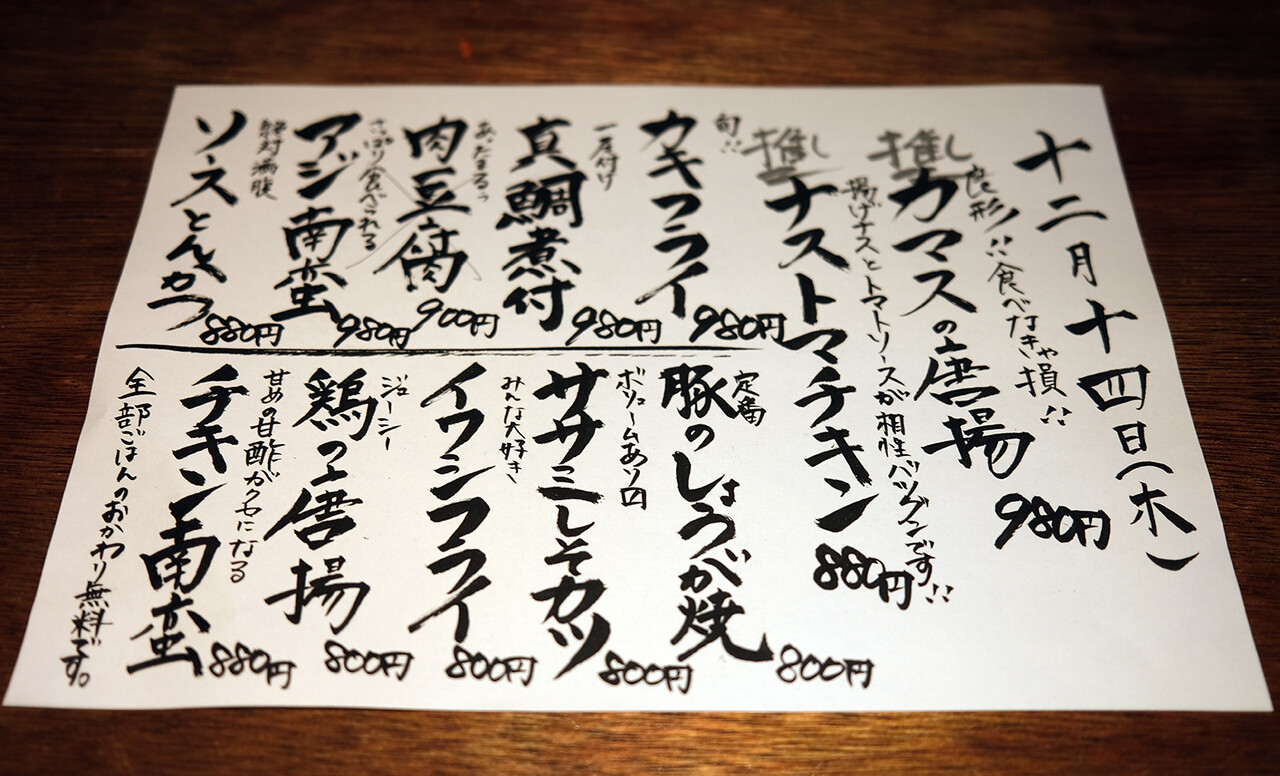 十二月十四日(木)
良形!!食べなきゃ損!!
推し
カマスの唐揚
980円
揚げナスとトマトソースが相性バツグンです!!
推し
ナストマチキン
880円
旬!!
カキフライ
980円
真鯛煮付
980円
あったまるぅ
肉豆腐
900円
さっぱり食べられる
アジ南蛮
980円
絶対満腹
ソースとんかつ
880円
定番
豚のしょうが焼
800円
ボリュームあり
ササミしそカツ
800円
みんな大好き
イワシフライ
800円
ジューシー
鶏の唐揚
800円
甘めの甘酢がクセになる
チキン南蛮
880円
全部ごはんのおかわり無料です。